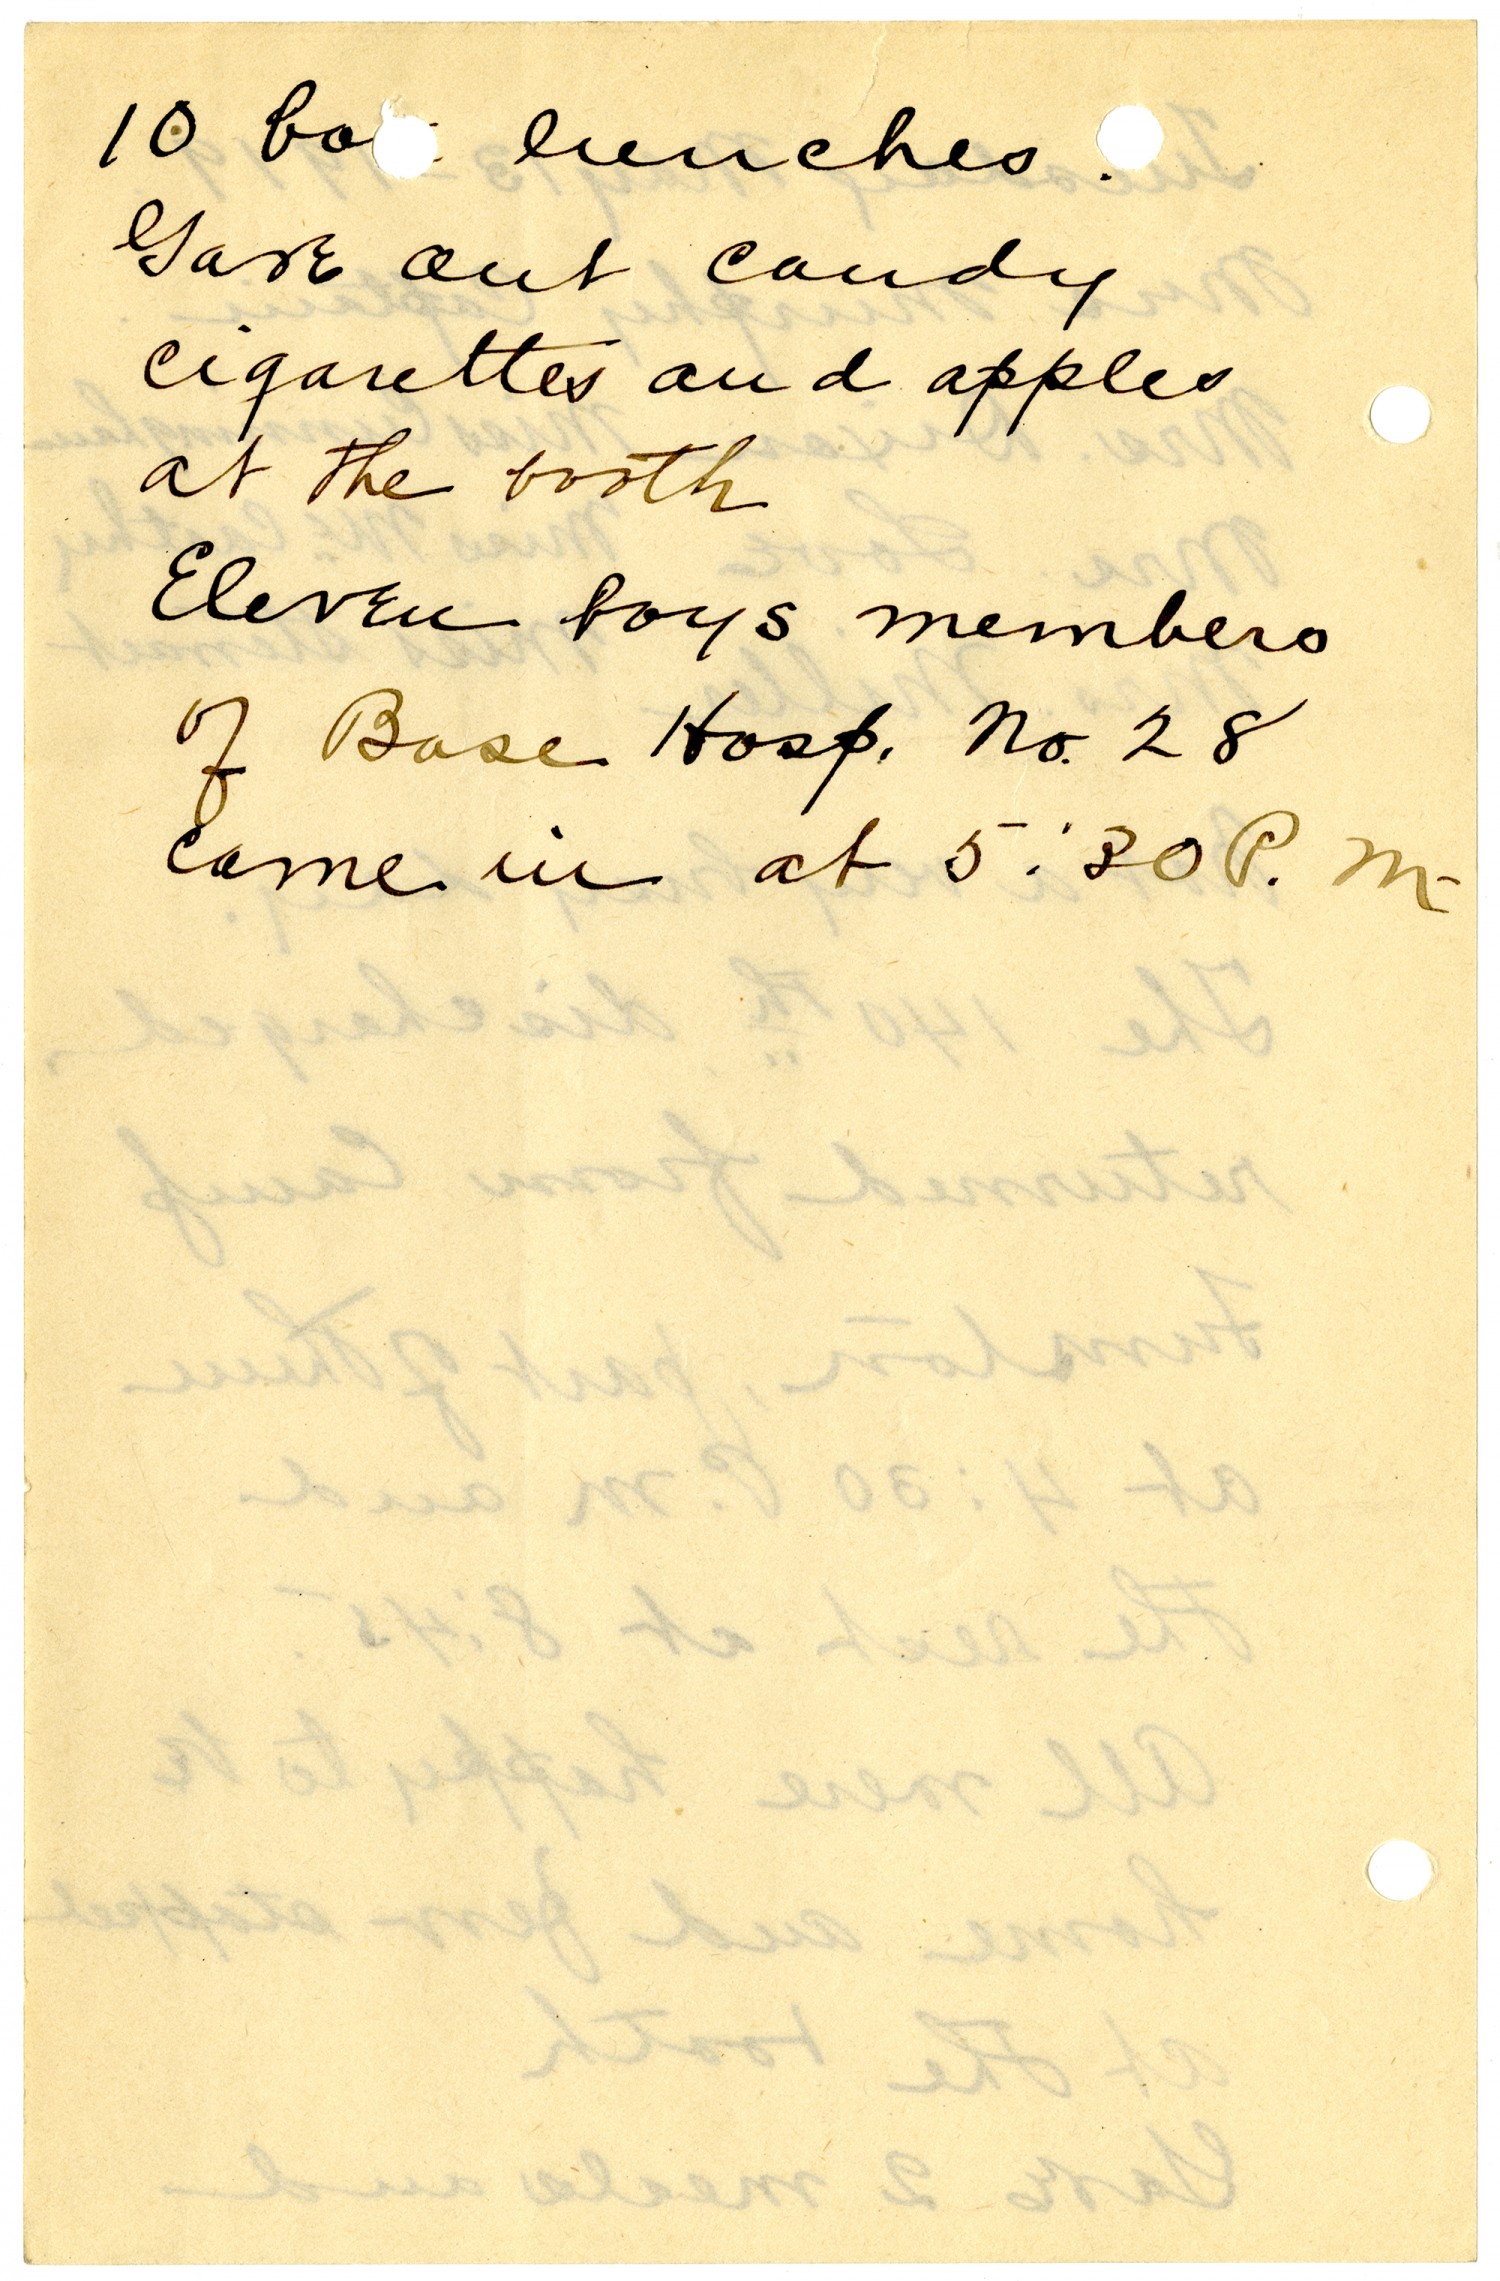 10 box lunches.
Gave out candy
cigarettes and apples
at the booth
Eleven boys members
of Base Hosp. No. 28
came in at 5:30 P. M.